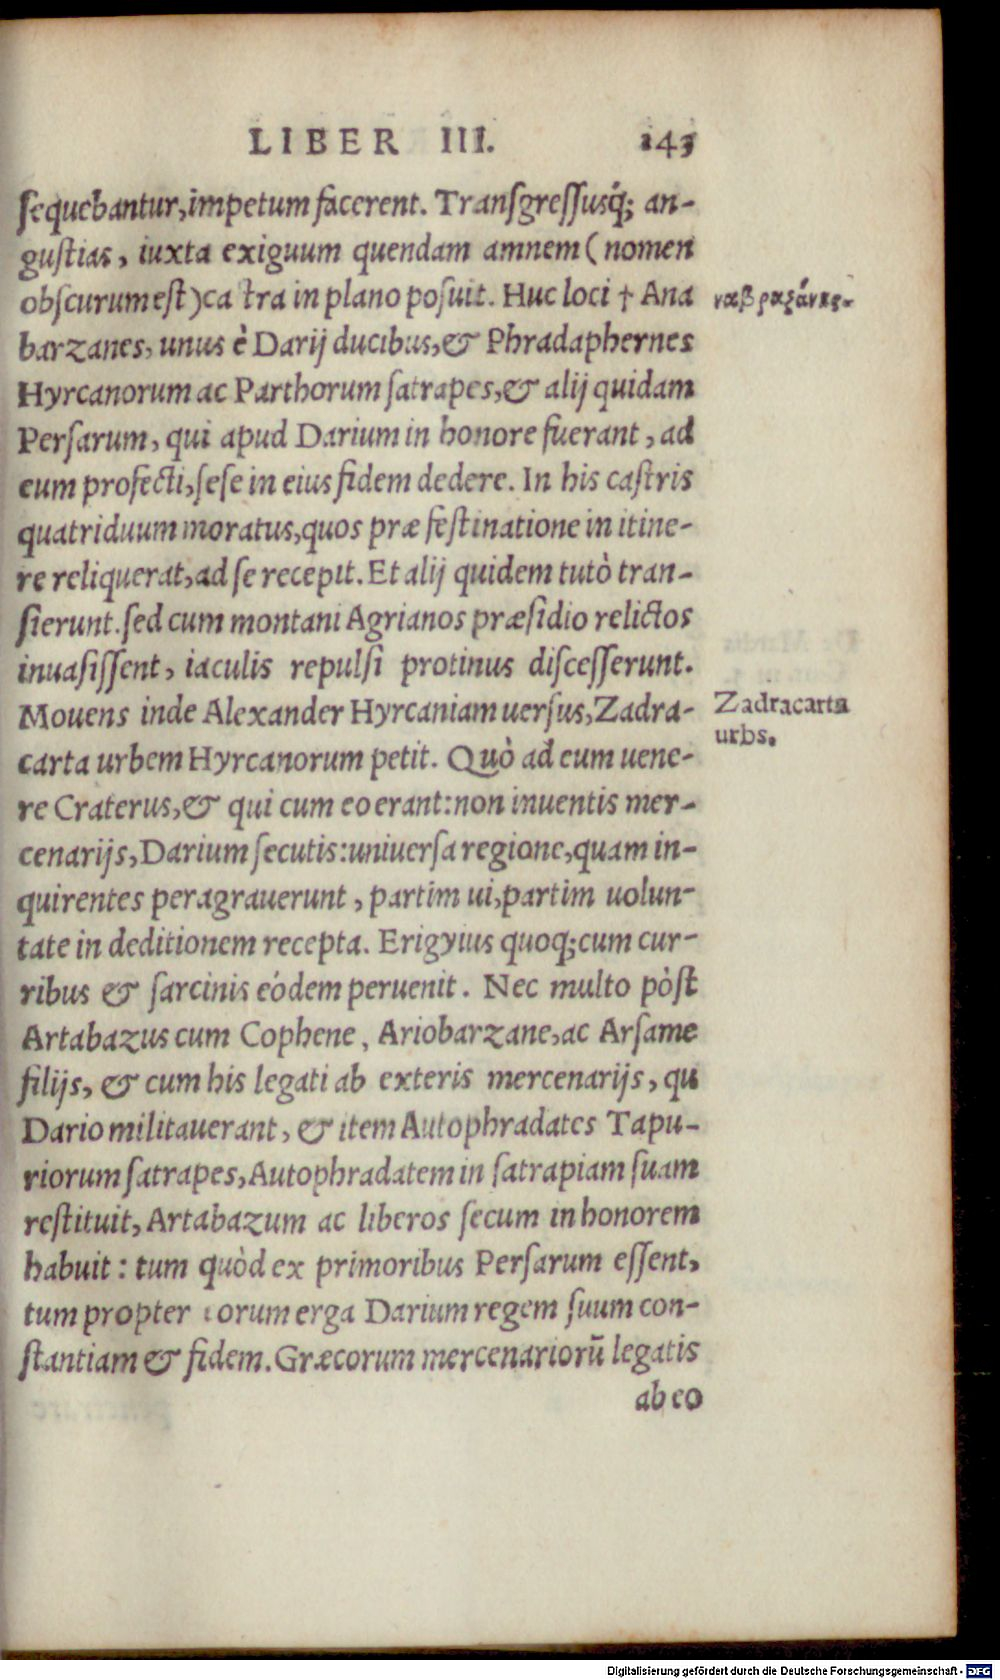 LIBER III. 143
sequebantur, impetum facerent. Transgressusq́; an-
gustias, iuxta exiguum quendam amnem (nomen
obscurum est) castra in plano posuit. Huc loci † Ana
ναβραζάνης.
barzanes, unus è Darij ducibus, & Phradaphernes
Hyrcanorum ac Parthorum satrapes, & alij quidam
Persarum, qui apud Darium in honore fuerant, ad
eum profecti, sese in eius fidem dedere. In his castris
quatriduum moratus, quos præ festinatione in itine-
re reliquerat, ad se recepit. Et alij quidem tutò tran-
sierunt. sed cum montani Agrianos præsidio relictos
inuasissent, iaculis repulsi protinus discesserunt.
Mouens inde Alexander Hyrcaniam uersus, Zadra-
Zadracarta
urbs.
carta urbem Hyrcanorum petit. Quò ad eum uene-
re Craterus, & qui cum eo erant: non inuentis mer-
cenarijs, Darium secutis: uniuersa regione, quam in-
quirentes peragrauerunt, partim ui, partim uolun-
tate in deditionem recepta. Erigyius quoq; cum cur-
ribus & sarcinis eódem peruenit. Nec multo pòst
Artabazus cum Cophene, Ariobarzane, ac Arsame
filijs, & cum his legati ab exteris mercenarijs, qui
Dario militauerant, & item Autophradates Tapu-
riorum satrapes, Autophradatem in satrapiam suam
restituit, Artabazum ac liberos secum in honorem
habuit: tum quòd ex primoribus Persarum essent,
tum propter eorum erga Darium regem suum con-
stantiam & fidem. Græcorum mercenariorū legatis
ab eo
Digitalisierung gefördert durch die Deutsche Forschungsgemeinschaft - DFG